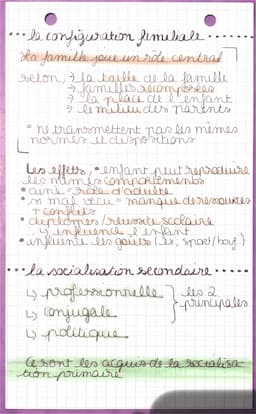 • • • la configuration familiale • • •
La famille joue un rôle central
selon, → la taille de la famille
→ familles recomposées
→ la place de l'enfant
→ le milieu des parents
= ne transmettent pas les mêmes
normes et dispositions
Les effets, • enfant peut reproduire
les mêmes comportements
• aîné = rôle d'adulte
• si mal vécu = manque de ressources
+ conflits
• diplômes / réussite scolaire
↳ influence l'enfant
• influence les goûts (ex, sport/bouf)
• • • la socialisation secondaire • • •
↳ professionnelle } les 2
↳ conjugale principales
↳ politique
Ce sont les acquis de la socialisa-
tion primaire